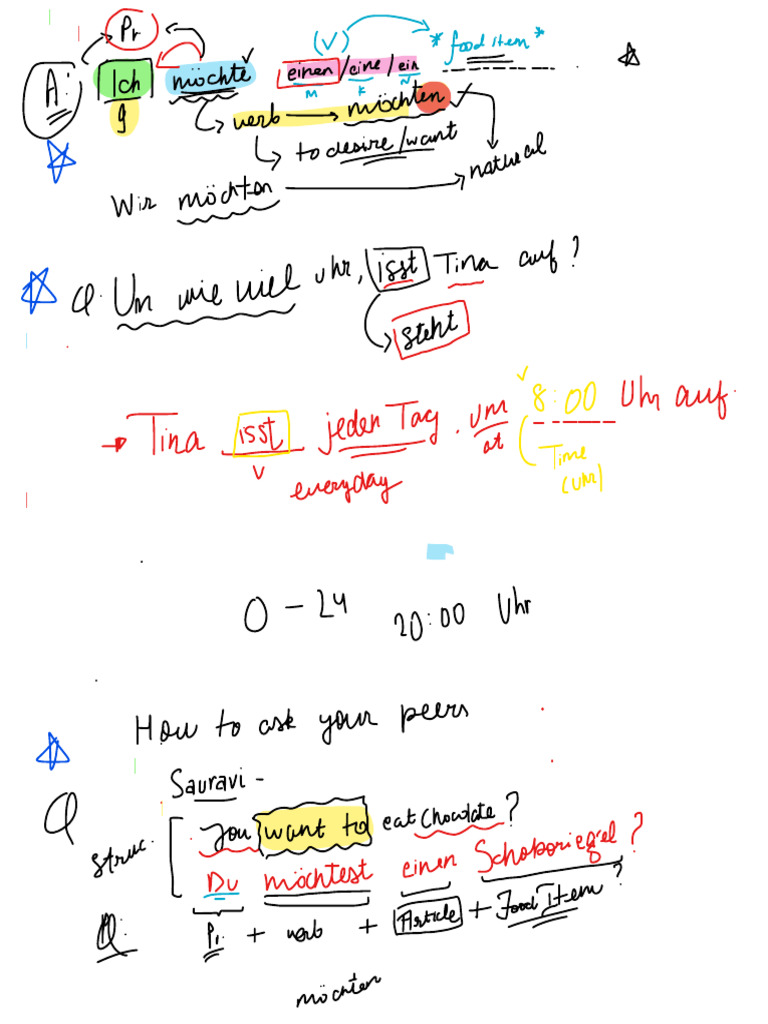 Pr
(V) *food item*
A: Ich möchte einen/eine/ein
M K N
g verb → möchten
to desire/want
natural
Wir möchten
Q. Um wie viel Uhr, isst Tina auf?
steht
→ Tina isst jeden Tag. um 8:00 Uhr auf.
V everyday at Time
(Uhr)
0-24 20:00 Uhr
How to ask your peers
Sauravi -
Q
struc. you want to eat Chocolate?
Du möchtest einen Schokoriegel?
Q: Pr. + verb + Article + Food Item?
möchten